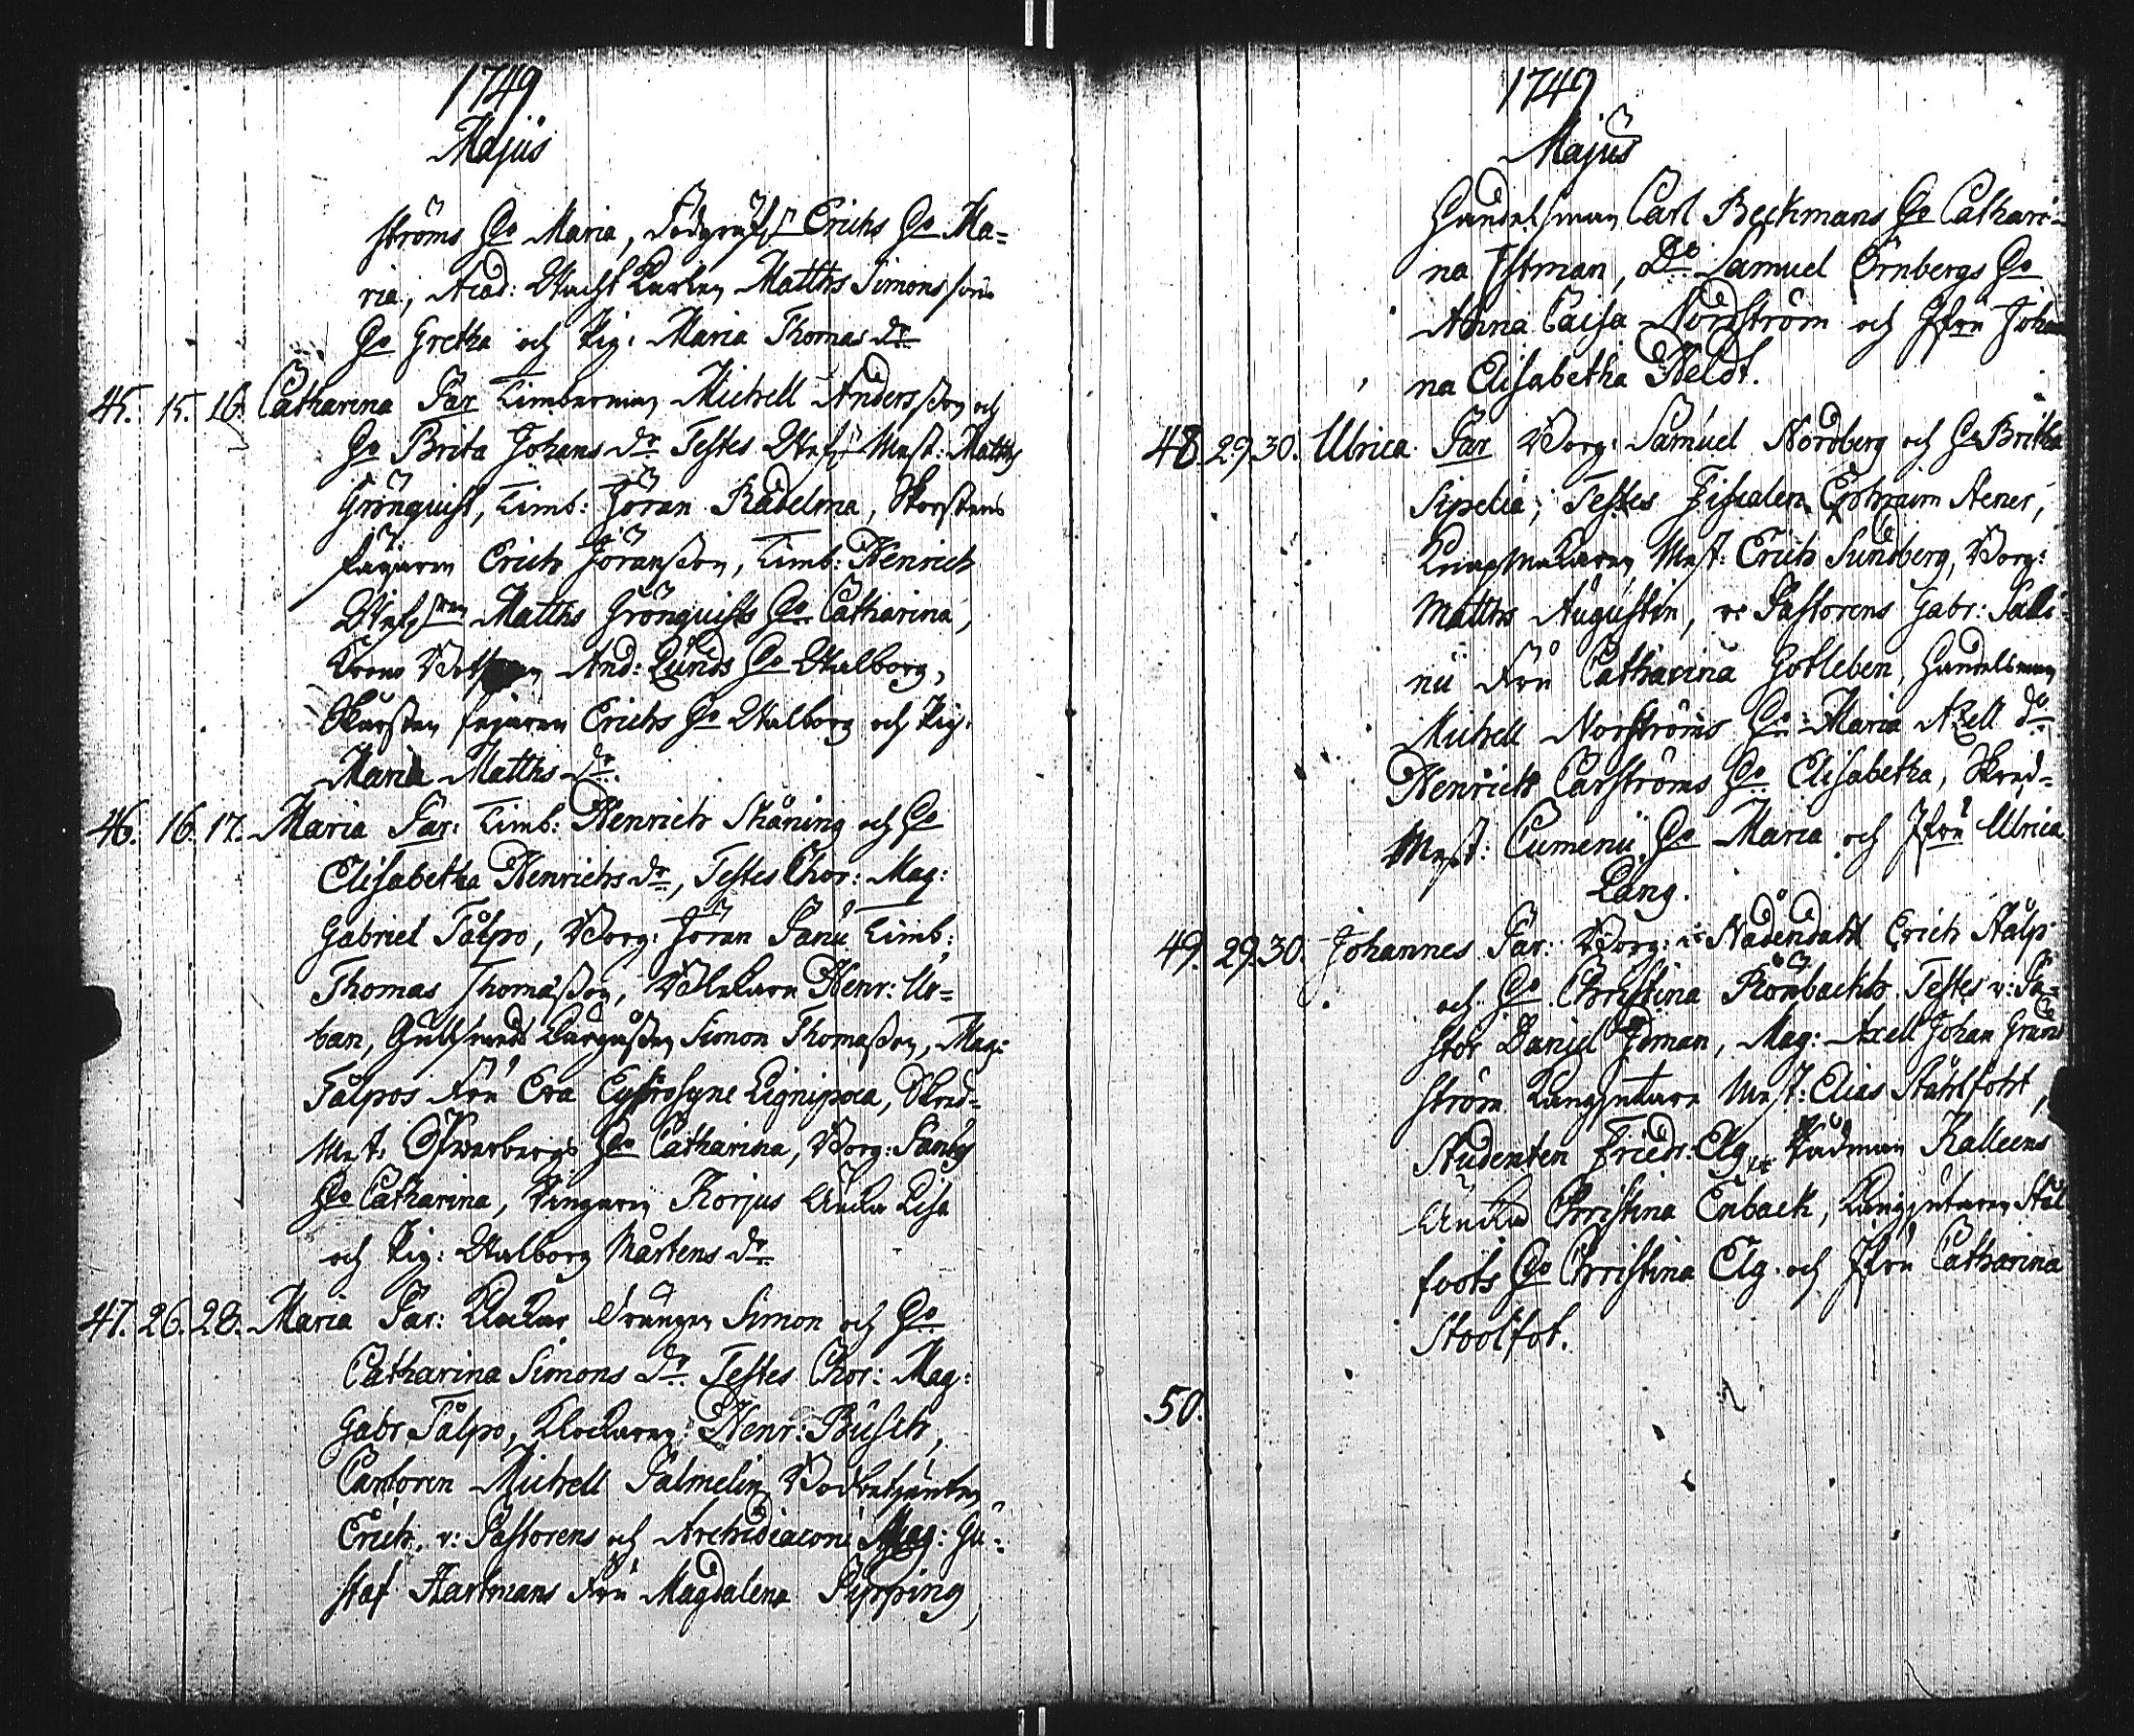 1749
Majus
ströms Ho Maria, Dödgräf: Erichs Ho Ma=
ria, Acad: Wacht Karlen Matths Simonsson
Ho Gretha och Pig: Maria Thomas dr
45. 15. 16. Catharina Par Timberman Michell Andersson och
Ho Brita Johans dr Testes Mest: Matths
Grönquist, Timb: Jöran Radelma, Skorstens
fejaren Erich Jöransson, Timb: Henrich
Matths Grönquists Ho Catharina,
And: Lunds Ho Walborg,
Skorsten fejaren Erichs Ho Walborg och Pig:
Maria Matths dr
46. 16. 17. Maria Par: Timb: Henrich Skåning och Ho
Elisabetha Henrichs dr, Testes Chor: Mag:
Gabriel Tålpo, Borg: Jöran Panu Timb:
Thomas Thomasson, Henr: Ur=
ban, Gullsmeds Simon Thomasson, Mag:
Tålpos Fru Eva Eyfrosyne Lignipæa, Skred=
Mest: Ho Catharina, Borg:
Ho Catharina, Ringaren Korjus Lisa
och Pig: Walborg Mårtens dr
47. 26. 28. Maria Par: Klockar Drängen Simon och Ho
Catharina Simons dr Testes Chor: Mag:
Gabr Tålpo, Klockaren: Henr: Busch,
Cantoren Michell Palmelin, Bodbetjenten
Erich, v: Pastorens och Archidiaconi Mag: Gu=
staf Hartmans Fru Magdalena Pipping,
1749
Majus
Handelsman Carl Beckmans Ho Cathari=
na Istman, Do Samuel Örnbergs Ho
Anna Caisa Nordström och Jfru Johan
na Elisabetha Heldt.
48. 29. 30. Ulrica Par Borg: Samuel Nordberg och Ho Britha
Sipelia; Testes Fiscalen Ephraim Aener,
Knapmakaren Mest: Erich Sundberg, Borg:
Matths Augustin, v: Pastorens Gabr: Salli=
nii Fru Catharina Gotleben, Handelsman
Michell Norströms Ho: Maria Axell dr
Henrich Carströms Ho Elisabetha, Skred=
Mest: Cumenii Ho Maria och Jfru Ulrica
Lang.
49. 29. 30. Johannes Par: Borg: i Nådendahl Erich Stålp
och Ho Christina Rönbackh Testes v: Pa=
stor Daniel Idman, Mag: Axell Johan Grand
ström Kangjutare Mest: Elias Ståhlfoht,
Studenten Friedr: Elg, Rådman Kalleens
Enckia Christina Enback, Kangjutaren Stål
foots Ho Christina Elg och Jfru Catharina
Stoolfot.
50.